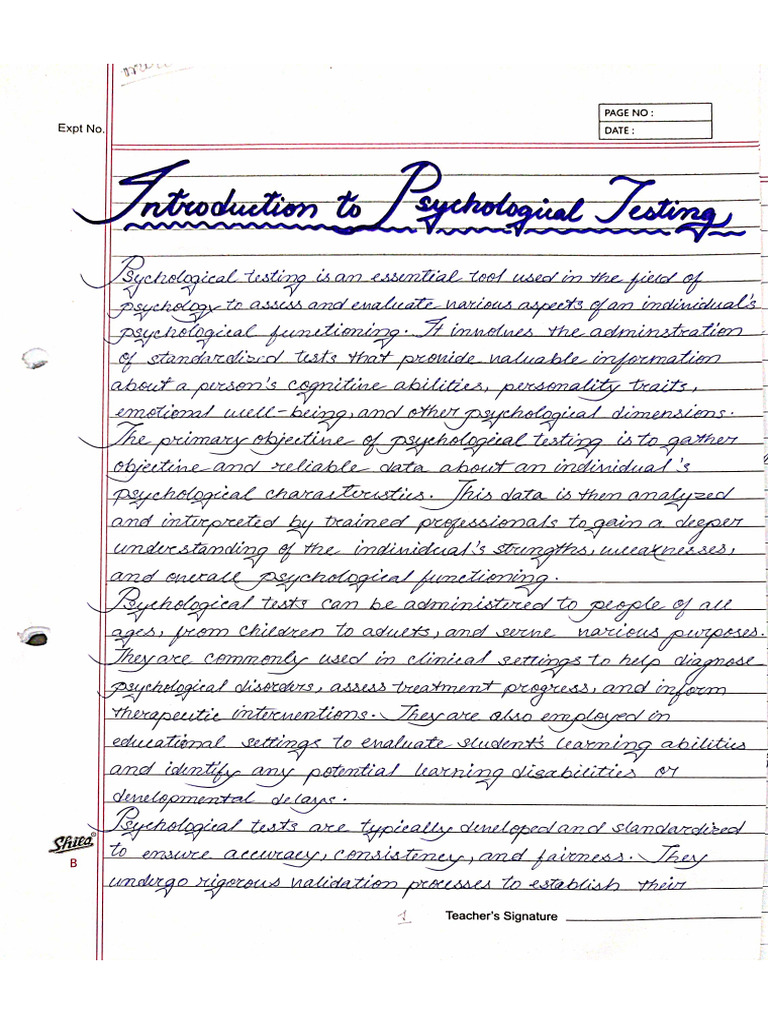 Expt No.
PAGE NO :
DATE :
Introduction to Psychological Testing
Psychological testing is an essential tool used in the field of
psychology to assess and evaluate various aspects of an individual's
psychological functioning. It involves the adminstration
of standardized tests that provide valuable information
about a person's cognitive abilities, personality traits,
emotional well-being, and other psychological dimensions.
The primary objective of psychological testing is to gather
objective and reliable data about an individual's
psychological characteristics. This data is then analyzed
and interpreted by trained professionals to gain a deeper
understanding of the individual's strengths, weaknesses,
and overall psychological functioning.
Psychological tests can be administered to people of all
ages, from children to adults, and serve various purposes.
They are commonly used in clinical settings to help diagnose
psychological disorders, assess treatment progress, and inform
therapeutic interventions. They are also employed in
educational settings to evaluate student's learning abilities
and identify any potential learning disabilities or
developmental delays.
Psychological tests are typically developed and standardized
to ensure accuracy, consistency, and fairness. They
undergo rigorous validation processes to establish their
Shiea
B
1
Teacher's Signature